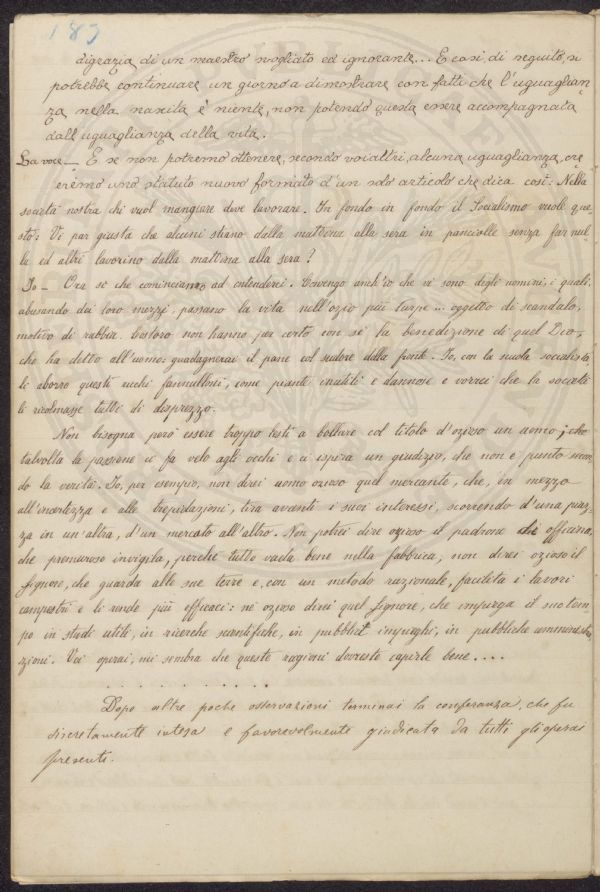 185
digrazia di un maestro svogliato ed ignorante... E così, di seguito, si
potrebbe continuare un giorno a dimostrare con fatti che l'uguaglian-
za nella nascita è niente, non potendo questa essere accompagnata
dall'uguaglianza della vita.
La voce — E se non potremo ottenere, secondo voialtri, alcuna uguaglianza, cre-
eremo uno statuto nuovo formato d'un solo articolo che dica così: Nella
società nostra chi vuol mangiare deve lavorare. In fondo in fondo il Socialismo vuole que-
sto: Vi par giusta che alcuni stiano dalla mattina alla sera in panciolle senza far nul-
la ed altri lavorino dalla mattina alla sera?
Io — Ora sì che cominciamo ad intenderci. Convengo anch'io che vi sono degli uomini, i quali,
abusando dei loro mezzi, passano la vita nell'ozio più turpe... oggetto di scandalo,
motivo di rabbia. Costoro non hanno per certo con sé la benedizione di quel Dio,
che ha detto all'uomo: guadagnerai il pane col sudore della fronte. Io, con la scuola socialista,
li aborro questi ricchi fannulloni, come piante inutili e dannose e vorrei che la società
li ricolmasse tutti di disprezzo.
Non bisogna però essere troppo lesti a bollare col titolo d'ozioso un uomo; chè
talvolta la passione ci fa velo agli occhi e ci ispira un giudizio, che non è punto secon-
do la verità. Io, per esempio, non direi uomo ozioso quel mercante, che, in mezzo
all'incertezza e alle trepidazioni, tira avanti i suoi interessi, scorrendo d'una piaz-
za in un'altra, d'un mercato all'altro. Non potrei dire ozioso il padrone di officina,
che premuroso invigila, perchè tutto vada bene nella fabbrica; non direi ozioso il
Signore, che guarda alle sue terre e, con un metodo razionale, facilita i lavori
campestri e li rende più efficaci: nè ozioso direi quel Signore, che impiega il suo tem-
po in studi utili, in ricerche scientifiche, in pubblici impieghi, in pubbliche amministra-
zioni. Voi operai, mi sembra che queste ragioni dovreste capirle bene....
. . . . . . . . . .
Dopo altre poche osservazioni terminai la conferenza, che fu
discretamente intesa e favorevolmente giudicata da tutti gli operai
presenti.